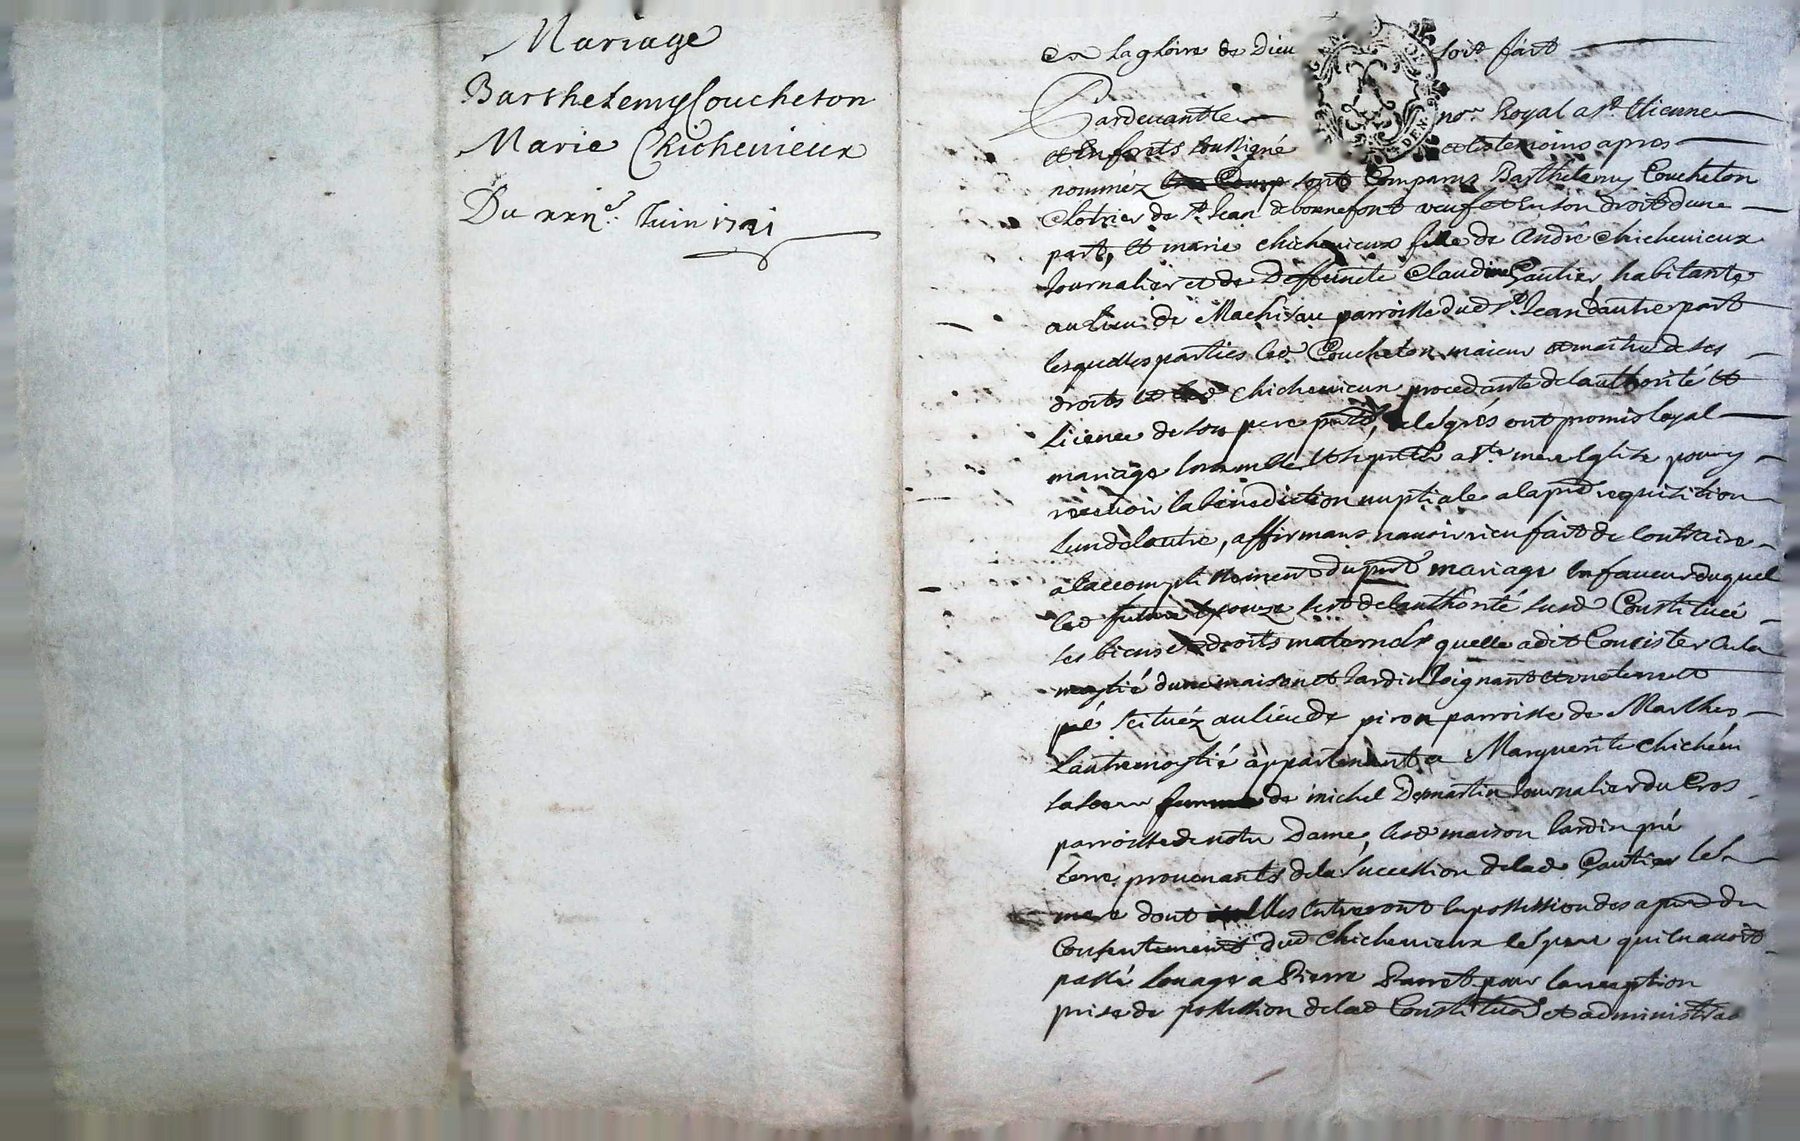 Mariage
Barthelemy Coucheton
Marie Chichevieux
Du xxij.e Juin 1721
A la gloire de Dieu soit fait
Pardevant le no.re Royal a S.t Etienne
en forets soussigné et les temoins apres
nommez sont Comparus Barthelemy Coucheton
Clotrier de S.t Jean de bonnefont veuf et en son droit dune
part, et marie Chichevieux fille de André Chichevieux
Journalier et de Deffuncte Claudine Gautier, habitante
au lieu de Machisau parroisse dud S.t Jean dautre part
lesquelles parties led Coucheton maieur et maitre de ses
droits et lad Chichevieux procedante de lauthorité et
licence de son pere pnt, de les grés ont promis loyal
mariage ensemble et se pnter a S.te mere Eglise pour y
recevoir la benediction nuptiale a la pre requisition
lun de lautre, affirmans navoir rien fait de contraire
a laccomplissement du pnt mariage en faveur duquel
lad future Epouze sest de lauthorité susd Constituée
ses biens et droits maternels quelle a dit Concister en la
moytié dune maison et Jardin Joignant et une terre et
pré scituéz au lieu de piron parroisse de Marlhes
Lautre moytié appartenant a Marguerite Chichevi
sa soeur femme de michel Demartin Journalier du Cros
parroisse de notre Dame, lesd maison Jardin pré
terre provenants de la succession de lad Gautier les
mere dont elles entreront en possession des a pnt du
Consentement dud Chichevieux les pere qui en avoit
passé louage a Pierre pour la reception
prise de possession de lad Constituon et administrao